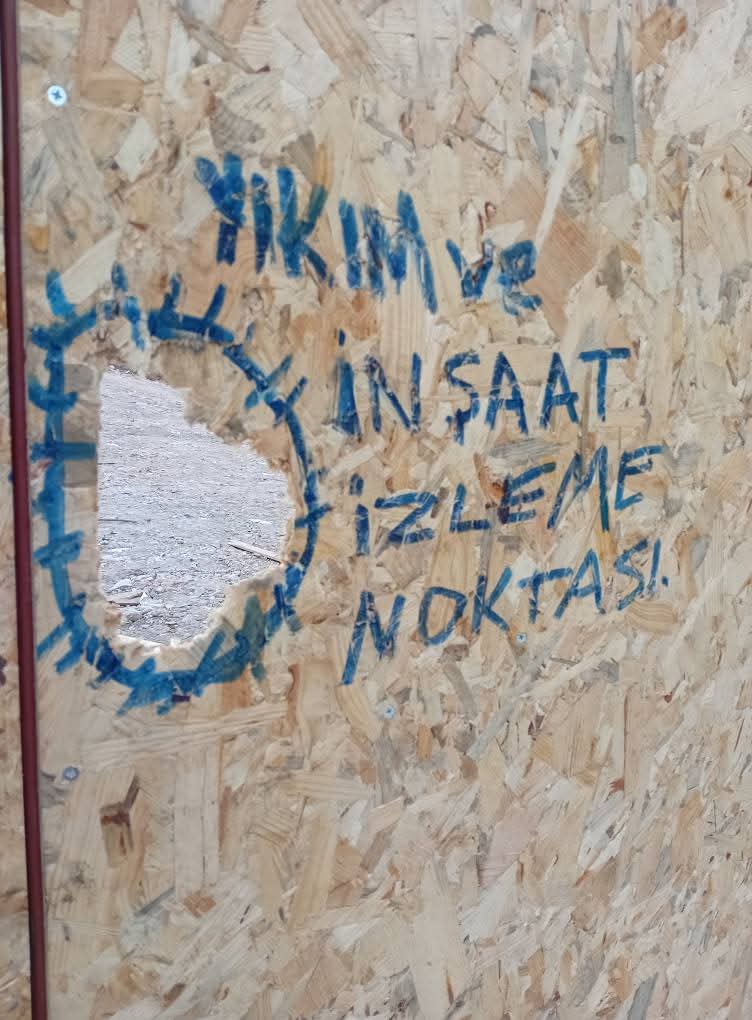 YIKIM ve
İNŞAAT
İZLEME
NOKTASI.